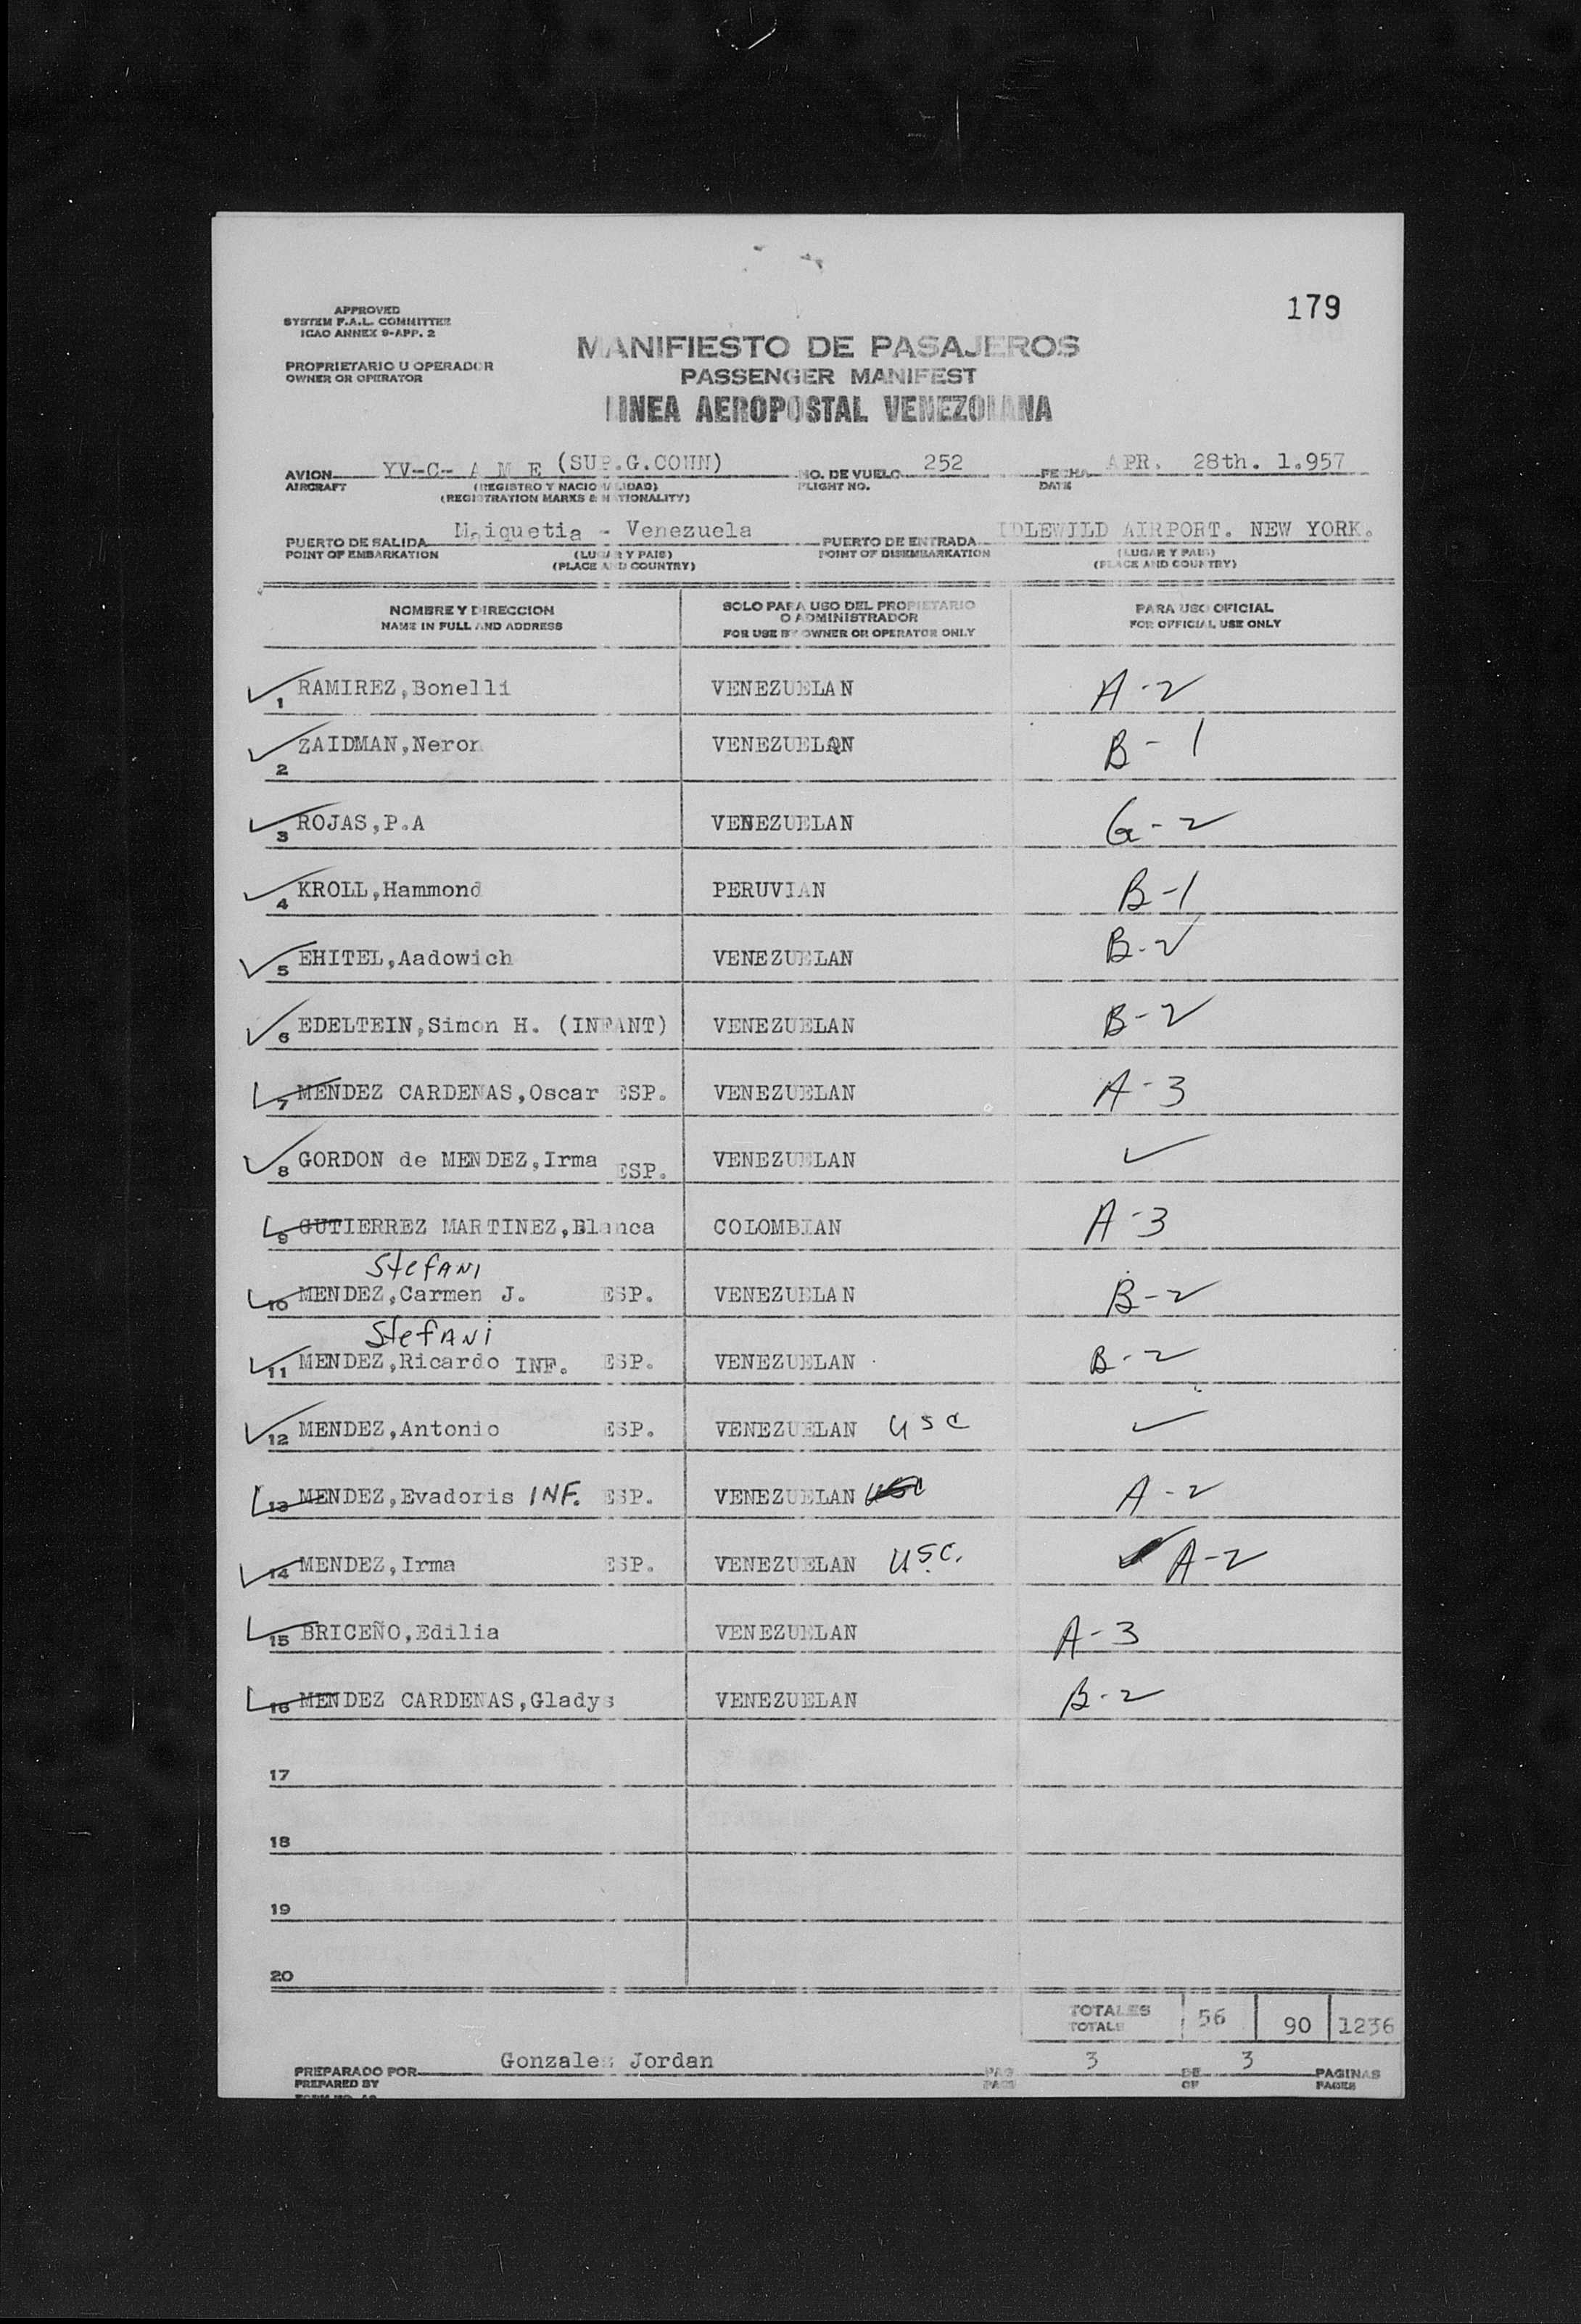 179
APPROVED
SYSTEM F.A.L. COMMITTEE
ICAO ANNEX 9-APP. 2
PROPRIETARIO U OPERADOR
OWNER OR OPERATOR
MANIFIESTO DE PASAJEROS
PASSENGER MANIFEST
LINEA AEROPOSTAL VENEZOLANA
AVION YV-C- A M E (SUP.G.CONN) NO. DE VUELO 252 FECHA APR. 28th. 1.957
AIRCRAFT (REGISTRO Y NACIONALIDAD) FLIGHT NO. DATE
(REGISTRATION MARKS & NATIONALITY)
PUERTO DE SALIDA Maiquetia - Venezuela PUERTO DE ENTRADA IDLEWILD AIRPORT. NEW YORK.
POINT OF EMBARKATION (LUGAR Y PAIS) POINT OF DISEMBARKATION (LUGAR Y PAIS)
(PLACE AND COUNTRY) (PLACE AND COUNTRY)
NOMBRE Y DIRECCION SOLO PARA USO DEL PROPIETARIO PARA USO OFICIAL
NAME IN FULL AND ADDRESS O ADMINISTRADOR FOR OFFICIAL USE ONLY
FOR USE BY OWNER OR OPERATOR ONLY
1 RAMIREZ,Bonelli VENEZUELAN A-2
2 ZAIDMAN,Neron VENEZUELAN B-1
3 ROJAS,P.A VENEZUELAN G-2
4 KROLL,Hammond PERUVIAN B-1
5 EHITEL,Aadowich VENEZUELAN B-2
6 EDELTEIN,Simon H. (INFANT) VENEZUELAN B-2
7 MENDEZ CARDENAS,Oscar ESP. VENEZUELAN A-3
8 GORDON de MENDEZ,Irma ESP. VENEZUELAN ✓
9 GUTIERREZ MARTINEZ,Blanca COLOMBIAN A-3
Stefani
10 MENDEZ,Carmen J. ESP. VENEZUELAN B-2
Stefani
11 MENDEZ,Ricardo INF. ESP. VENEZUELAN B-2
12 MENDEZ,Antonio ESP. VENEZUELAN USC ✓
13 MENDEZ,Evadoris INF. ESP. VENEZUELAN USC A-2
14 MENDEZ,Irma ESP. VENEZUELAN USC. A-2
15 BRICEÑO,Edilia VENEZUELAN A-3
16 MENDEZ CARDENAS,Gladys VENEZUELAN B-2
17
18
19
20
TOTALES 56 90 1236
TOTALS
PREPARADO POR Gonzales Jordan PAG 3 DE 3 PAGINAS
PREPARED BY PAGE OF PAGES